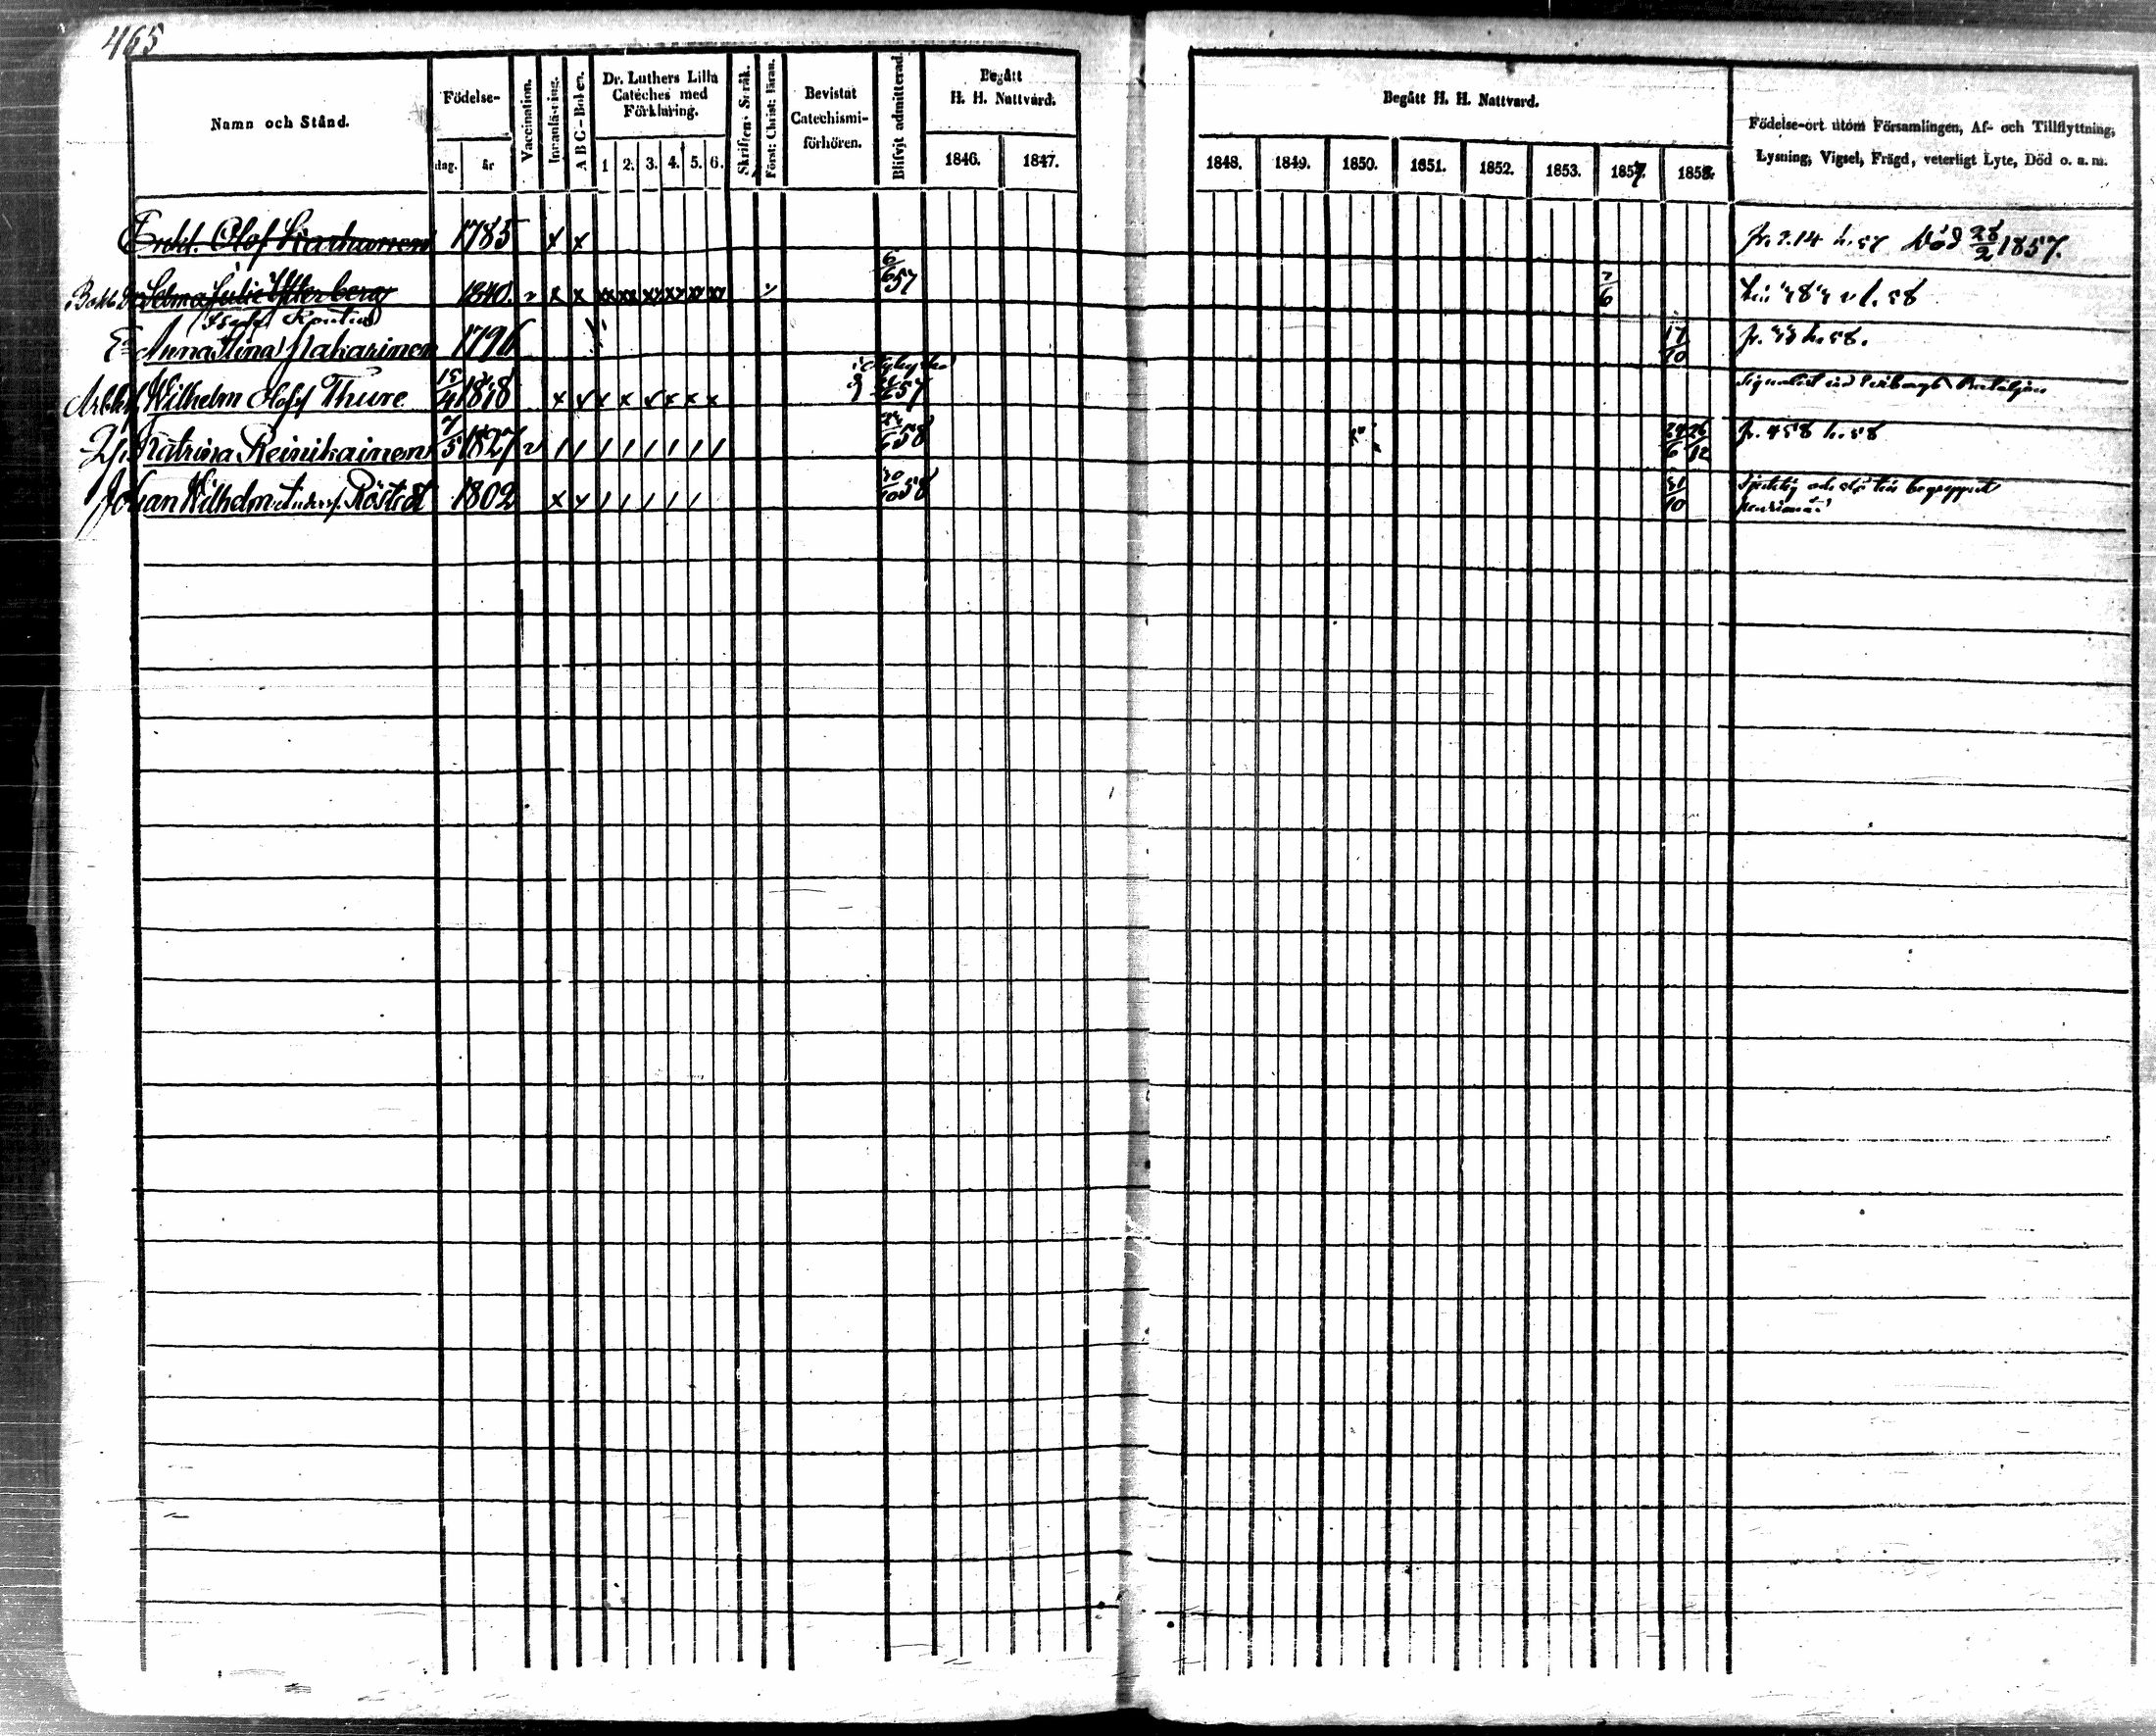 465
Namn och Stånd.
Födelse-
dag. år
Vaccination.
Innanläsning.
A B C - Boken.
Dr. Luthers Lilla Catéches med Förklaring.
1 2. 3. 4. 5. 6.
Skriften: Språk.
Först: Christ: läran.
Bevistat Catechismi-förhören.
Blifvit admitterad.
Begått H. H. Nattvard.
1846. 1847.
Begått H. H. Nattvard.
1848. 1849. 1850. 1851. 1852. 1853. 1857. 1858.
Födelse-ort utom Församlingen, Af- och Tillflyttning,
Lysning, Vigsel, Frägd, veterligt Lyte, Död o. a. m.
Olof 1785 x x Död 28/2 1857.
Selma Julie 1840. x x xx xx xx xx xx xx 6/6 57 7/6
Anna Stina Makarinen 1796 17/10 h. 58.
Wilhelm Olof Thure 15/4 1818 x x x x x x x x 57
Katrina Reinikainen 7/5 1827 / / / / / / / / 58 24/6 26/12 fr. 458 h. 58
Johan Wilhelm Röstedt 1802 x x / / / / / 30/10 58 31/10